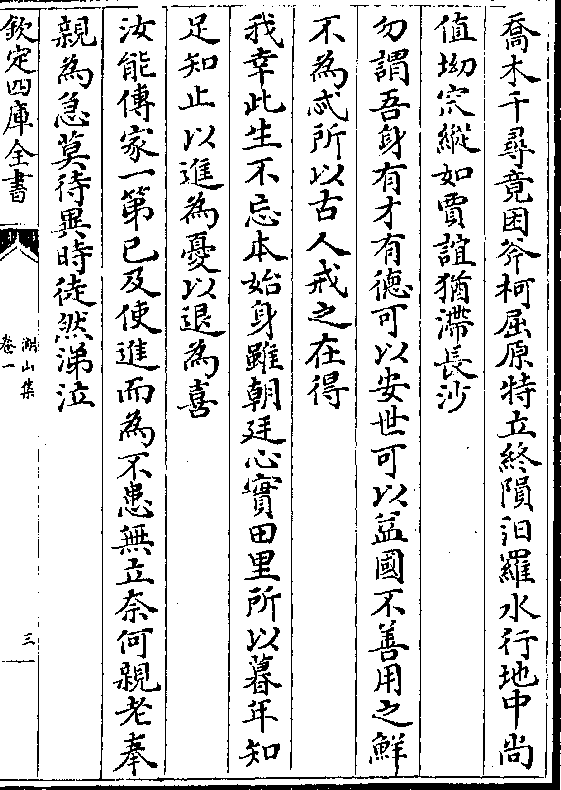 喬木千尋竟困斧柯屈原特立終隕汨羅水行地中尚
值坳宗縱如賈誼猶滯長沙
勿謂吾身有才有德可以安世可以益國不善用之鮮
不為忒所以古人戒之在得
我幸此生不忘本始身雖朝廷心實田里所以暮年知
足知止以進為憂以退為喜
汝能傳家一第已及使進而為不患無立奈何親老奉
親為急莫待異時徒然涕泣
欽定四庫全書
湖山集
卷一
三